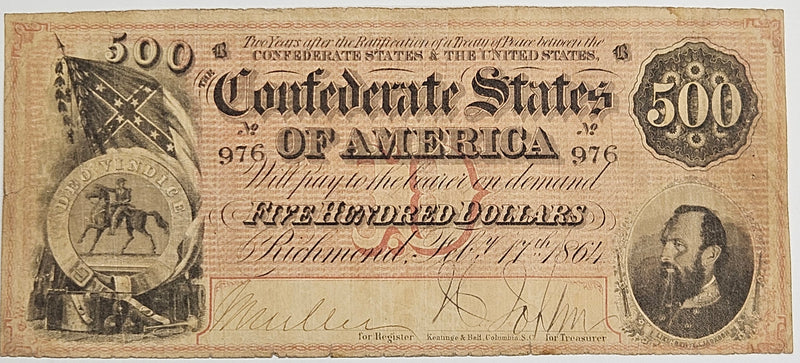 500
B
Two Years after the Ratification of a Treaty of Peace between the
B
CONFEDERATE STATES & THE UNITED STATES,
THE
Confederate States
500
No No
976 OF AMERICA 976
Will pay to the bearer on demand
DEO VINDICE
FIVE HUNDRED DOLLARS
Richmond, Feby. 17th 1864
for Register Keatinge & Ball, Columbia, S.C. for Treasurer